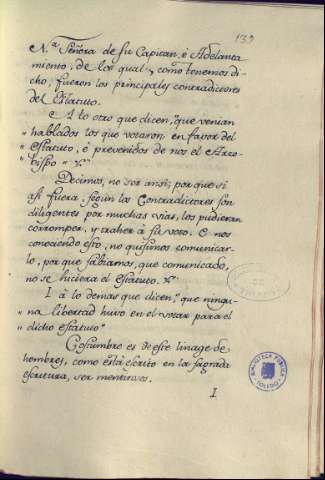 139
N.ª Señora de su Capitan, é Adelanta
miento, de los qual, como tenemos di
cho, fueron los principales contradictores
del Estatuto.
A lo otro que dicen, "que venian
"hablados los que votaron en favor del
"estatuto, é prevenidos de nos el Arzo-
"bispo" &.ª
Decimos, no ser ansi; porque si
asi fuera, segun los Contradictores son
diligentes por muchas vias, los pudieran
corromper, y traher á su voto. E nos
conociendo esto, no quisimos comunicar-
lo, porque sabiamos, que comunicado,
no se hiciera el estatuto. &.ª
I á lo demas que dicen, "que ningu-
"na libertad huvo en el votar para el
"dicho estatuto"
Costumbre es de este linage de
hombres, como está escrito en la sagrada
escritura, ser mentirosos.
I
BIBLIOTECA PUBLICA
TOLEDO